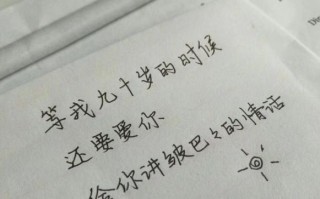 等我九十岁的时候
还要爱你
给你讲皱巴々的情话